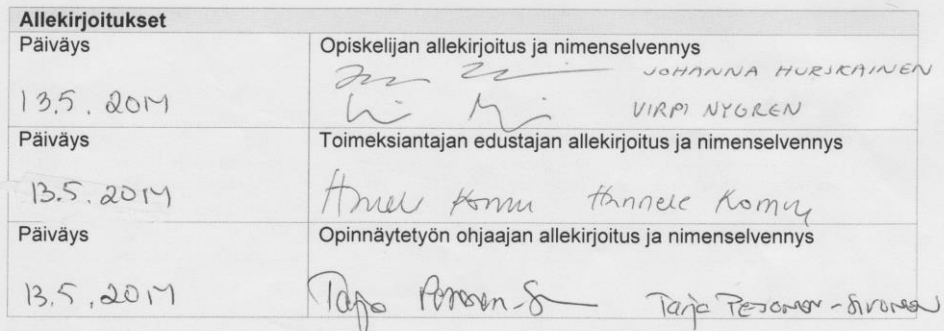 Allekirjoitukset
Päiväys
Opiskelijan allekirjoitus ja nimenselvennys
JOHANNA HURSKAINEN
13.5.2014
VIRPI NYGREN
Päiväys
Toimeksiantajan edustajan allekirjoitus ja nimenselvennys
13.5.2014
Hannele Komu
Päiväys
Opinnäytetyön ohjaajan allekirjoitus ja nimenselvennys
13.5.2014
Tarja Pesonen-Sivonen